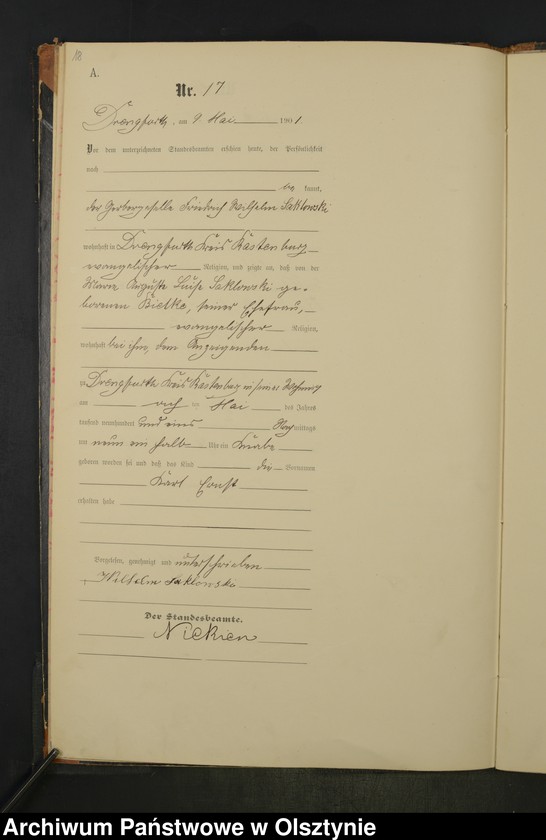 18
A.
Nr. 17
Drengfurth, am 9 Mai 1901.
Vor dem unterzeichneten Standesbeamten erschien heute, der Persönlichkeit
nach
be kannt,
der Gerbergeselle Friedrich Wilhelm Saklowski
wohnhaft in Drengfurth Kreis Rastenburg
evangelischer Religion, und zeigte an, daß von der
Marie Auguste Luise Saklowski ge-
borenen Bietke, seiner Ehefrau,
evangelischer Religion,
wohnhaft bei ihm, dem Anzeigenden
zu Drengfurth Kreis Rastenburg in seiner Wohnung
am des Jahres
Mai
tausend neunhundert und eins Nachmittags
um neun ein halb Uhr ein Knabe
geboren worden sei und daß das Kind die Vornamen
Karl Ernst
erhalten habe
Vorgelesen, genehmigt und unterschrieben
Wilhelm Saklowski
Der Standesbeamte.
Nickien
Archiwum Państwowe w Olsztynie